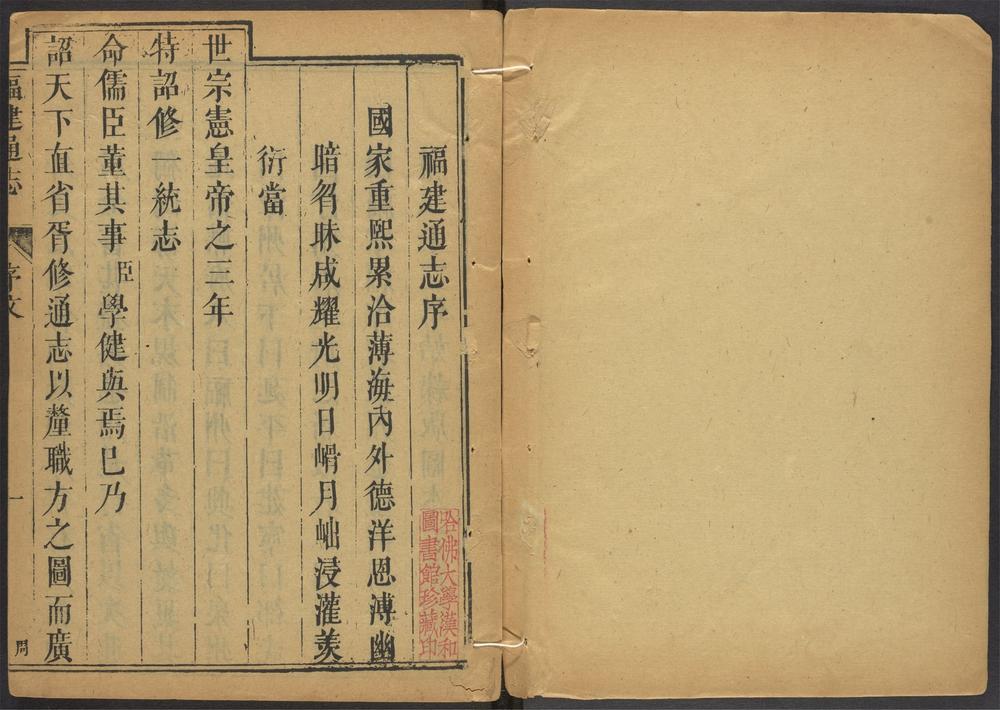 福建通志序
國家重熙累洽薄海內外德洋恩溥幽
暗昧咸耀光明日月浸灌羡
衍當
世宗憲皇帝之三年
特詔修一統志
命儒臣董其事臣學健與焉巳乃
詔天下直省胥修通志以釐職方之圖而廣
福建通志 序文 一 問
哈佛大學漢和
圖書館珍藏印